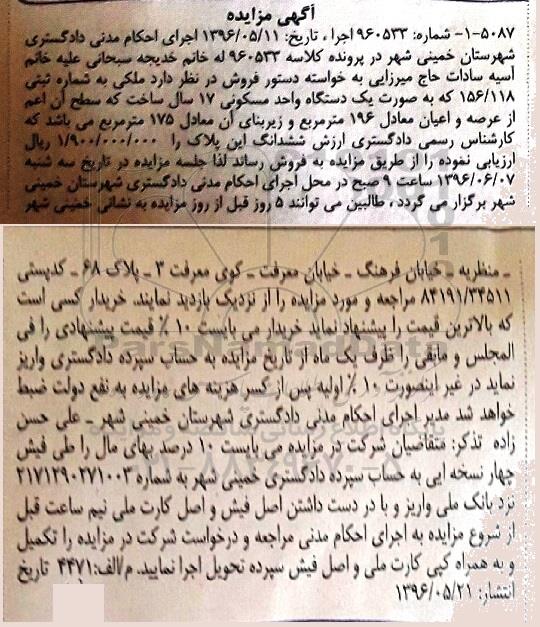 آگهی مزایده
۵۰۸۷-۱- شماره: ۹۶۰۵۳۳ اجرا ، تاریخ: ۱۳۹۶/۰۵/۱۱ اجرای احکام مدنی دادگستری
شهرستان خمینی شهر در پرونده کلاسه ۹۶۰۵۳۳ له خانم خدیجه سبحانی علیه خانم
آسیه سادات حاج میرزایی به خواسته دستور فروش در نظر دارد ملکی به شماره ثبتی
۱۵۶/۱۱۸ که به صورت یک دستگاه واحد مسکونی ۱۷ سال ساخت که سطح آن اعم
از عرصه و اعیان معادل ۱۹۶ مترمربع و زیربنای آن معادل ۱۷۵ مترمربع می باشد که
کارشناس رسمی دادگستری ارزش ششدانگ این پلاک را ۱/۹۰۰/۰۰۰/۰۰۰ ریال
ارزیابی نموده را از طریق مزایده به فروش رساند لذا جلسه مزایده در تاریخ سه شنبه
۱۳۹۶/۰۶/۰۷ ساعت ۹ صبح در محل اجرای احکام مدنی دادگستری شهرستان خمینی
شهر برگزار می گردد ، طالبین می توانند ۵ روز قبل از روز مزایده به نشانی خمینی شهر
ـ منظریه ـ خیابان فرهنگ ـ خیابان معرفت ـ کوی معرفت ۳ ـ پلاک ۶۸ ـ کدپستی
۸۴۱۹۱/۳۴۵۱۱ مراجعه و مورد مزایده را از نزدیک بازدید نمایند. خریدار کسی است
که بالاترین قیمت را پیشنهاد نماید خریدار می بایست ۱۰ ٪ قیمت پیشنهادی را فی
المجلس و مابقی را ظرف یک ماه از تاریخ مزایده به حساب سپرده دادگستری واریز
نماید در غیر اینصورت ۱۰ ٪ اولیه پس از کسر هزینه های مزایده به نفع دولت ضبط
خواهد شد مدیر اجرای احکام مدنی دادگستری شهرستان خمینی شهر ـ علی حسن
زاده تذکر: متقاضیان شرکت در مزایده می بایست ۱۰ درصد بهای مال را طی فیش
چهار نسخه ایی به حساب سپرده دادگستری خمینی شهر به شماره ۲۱۷۱۲۹۰۲۷۱۰۰۳
نزد بانک ملی واریز و با در دست داشتن اصل فیش و اصل کارت ملی نیم ساعت قبل
از شروع مزایده به اجرای احکام مدنی مراجعه و درخواست شرکت در مزایده را تکمیل
و به همراه کپی کارت ملی و اصل فیش سپرده تحویل اجرا نمایید. م/الف:۴۴۷۱ تاریخ
انتشار: ۱۳۹۶/۰۵/۲۱
ParsNamadData